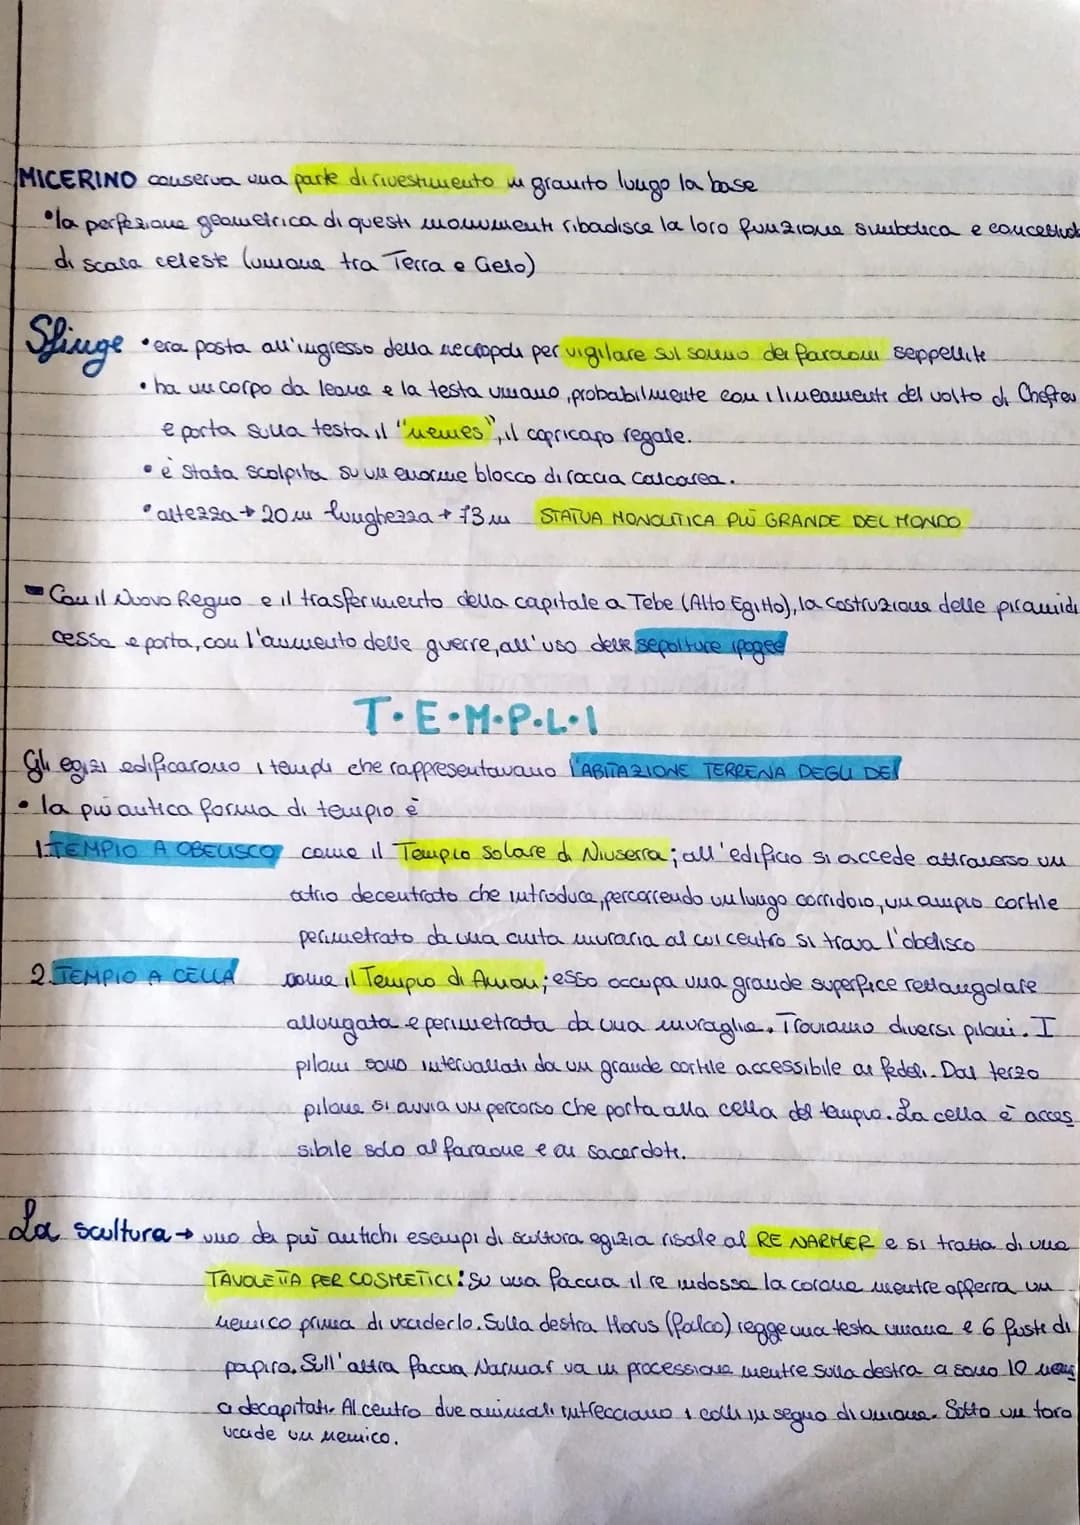 MICERINO conserva una parte di rivestimento in granito lungo la base
•la perfezione geometrica di questi monumenti ribadisce la loro funzione simbolica e
di scala celeste (unione tra Terra e Cielo)
Sfinge •era posta all'ingresso della necropoli per vigilare sul sonno dei faraoni seppellite
•ha un corpo da leone e la testa umano, probabilmente con i lineamenti del volto di Chefren
e porta sulla testa il "nemes", il copricapo regale.
•è stata scolpita su un enorme blocco di roccia calcarea.
•altezza→20 m lunghezza→73 m STATUA MONOLITICA PIÙ GRANDE DEL MONDO
- Con il Nuovo Regno e il trasferimento della capitale a Tebe (Alto Egitto), la costruzione delle piramidi
cessa e porta, con l'aumento delle guerre, all'uso delle sepolture ipogee
T•E•M•P•L•I
Gli egizi edificarono i templi che rappresentavano l'ABITAZIONE TERRENA DEGLI DEI
• la più antica forma di tempio è
1.TEMPIO A OBELISCO come il Tempio Solare di Niuserra; all'edificio si accede attraverso un
atrio decentrato che introduce, percorrendo un lungo corridoio, un ampio cortile
perimetrato da una cinta muraria al cui centro si trova l'obelisco
2.TEMPIO A CELLA come il Tempio di Amon; esso occupa una grande superfice rettangolare
allungata e perimetrata da una muraglia. Troviamo diversi piloni. I
piloni sono intervallati da un grande cortile accessibile ai fedeli. Dal terzo
pilone si avvia un percorso che porta alla cella del tempio. La cella è acces
sibile solo al faraone e ai sacerdoti.
La scultura → uno dei più antichi esempi di scultura egizia risale al RE NARMER e si tratta di una
TAVOLETTA PER COSMETICI: su una faccia il re indossa la corona mentre afferra un
nemico prima di ucciderlo. Sulla destra Horus (falco) regge una testa umana e 6 fusti di
papiro. Sull'altra faccia Narmar va in processione mentre sulla destra ci sono 10 nemi
ci decapitati. Al centro due animali intrecciano i colli in segno di unione. Sotto un toro
uccide un nemico.